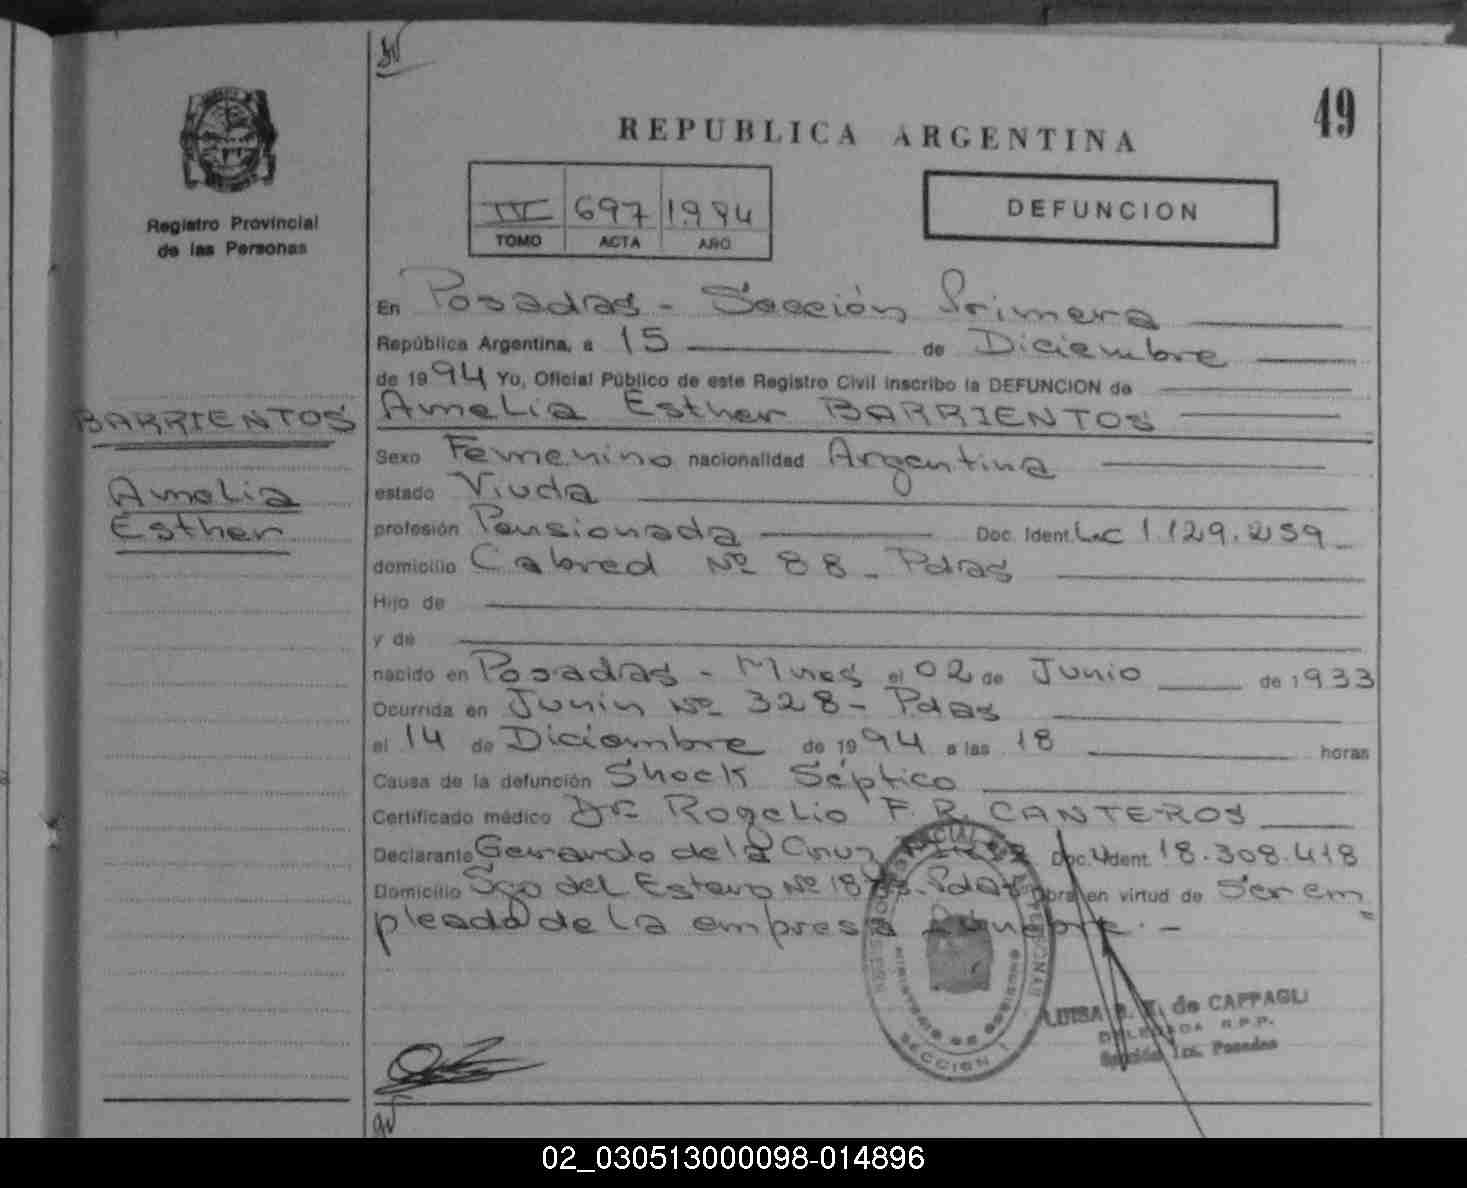 49
REPUBLICA ARGENTINA
Registro Provincial
de las Personas
III 697 1994
TOMO ACTA AÑO
DEFUNCION
BARRIENTOS
Amelia
Esther
En Posadas - Sección Primera
República Argentina, a 15 de Diciembre
de 1994 Yo, Oficial Público de este Registro Civil inscribo la DEFUNCION de
Amelia Esther BARRIENTOS
Sexo Femenino nacionalidad Argentina
estado Viuda
profesión Pensionada Doc. Ident. L.C 1.129.259
domicilio Cabred Nº 88 - Pdas
Hijo de
y de
nacido en Posadas - Mnes el 02 de Junio de 1933
Ocurrida en Junin Nº 328 - Pdas
el 14 de Diciembre de 1994 a las 18 horas
Causa de la defunción Shock Séptico
Certificado médico Dr. Rogelio F. R. CANTEROS
Declarante Gerardo de la Cruz Doc. Ident. 18.308.418
Domicilio Sgo del Estero Nº Pdas Obra en virtud de Ser em
pleado de la empresa Funebre. -
MINISTERIO DE GOBIERNO
SECCION 1
LUISA de CAPPAGLI
DELEGADA R.P.P.
Sección 1ra. Posadas
02_030513000098-014896